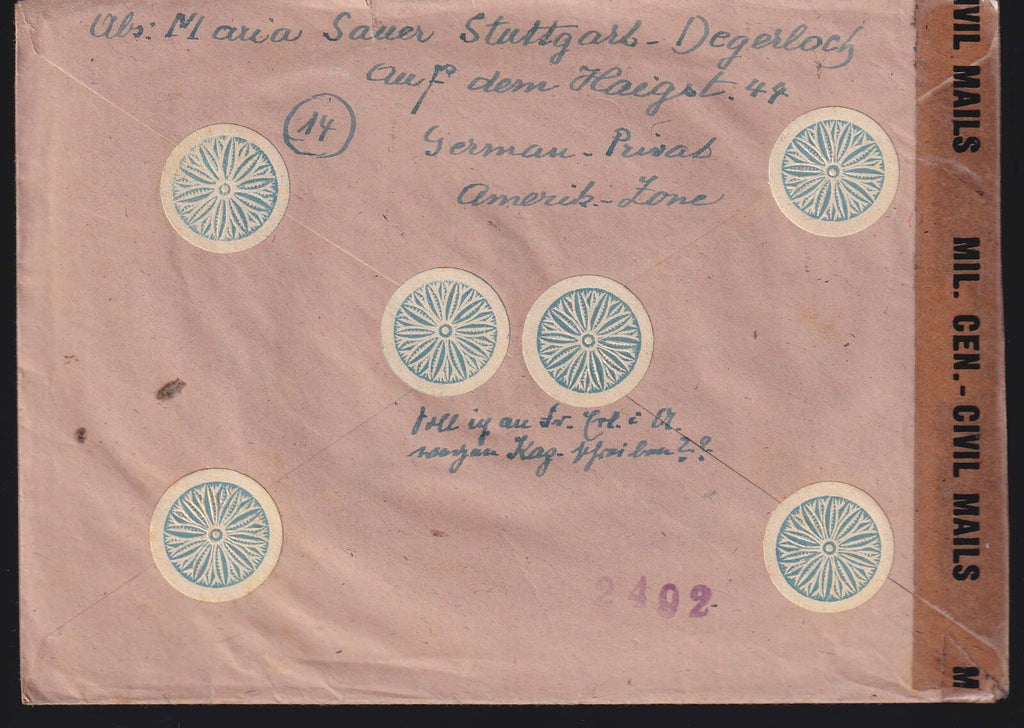 Abs: Maria Sauer Stuttgart-Degerloch
Auf dem Haigst. 44
14
German-Privat
Amerik-Zone
soll ich an Fr. Erl. i A.
wegen Kag. schreiben??
2402
CIVIL MAILS
MIL. CEN.-CIVIL MAILS
M